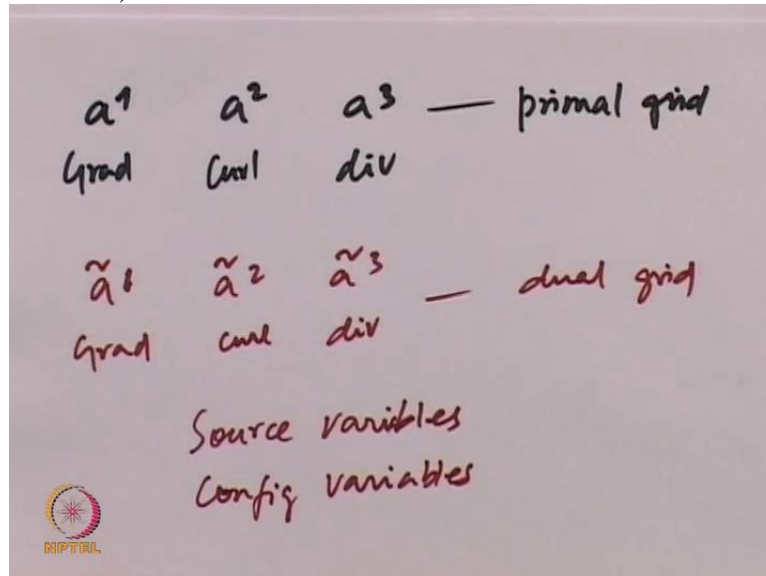 a¹ a² a³ — primal grid
Grad Curl div
ã¹ ã² ã³ — dual grid
Grad curl div
Source variables
Config variables
NPTEL